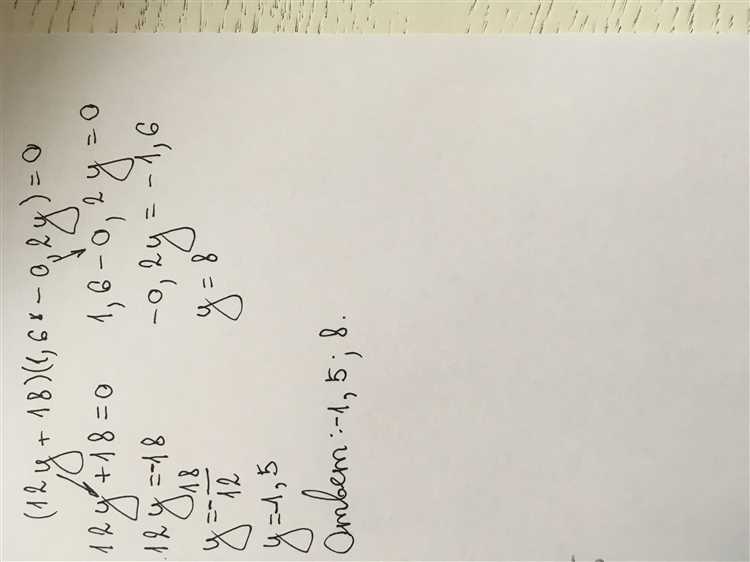 (12y + 18)(1,6 - 0,2y) = 0
12y + 18 = 0 1,6 - 0,2y = 0
12y = -18 -0,2y = -1,6
y = -18/12 y = 8
y = -1,5
Ответ: -1,5; 8.